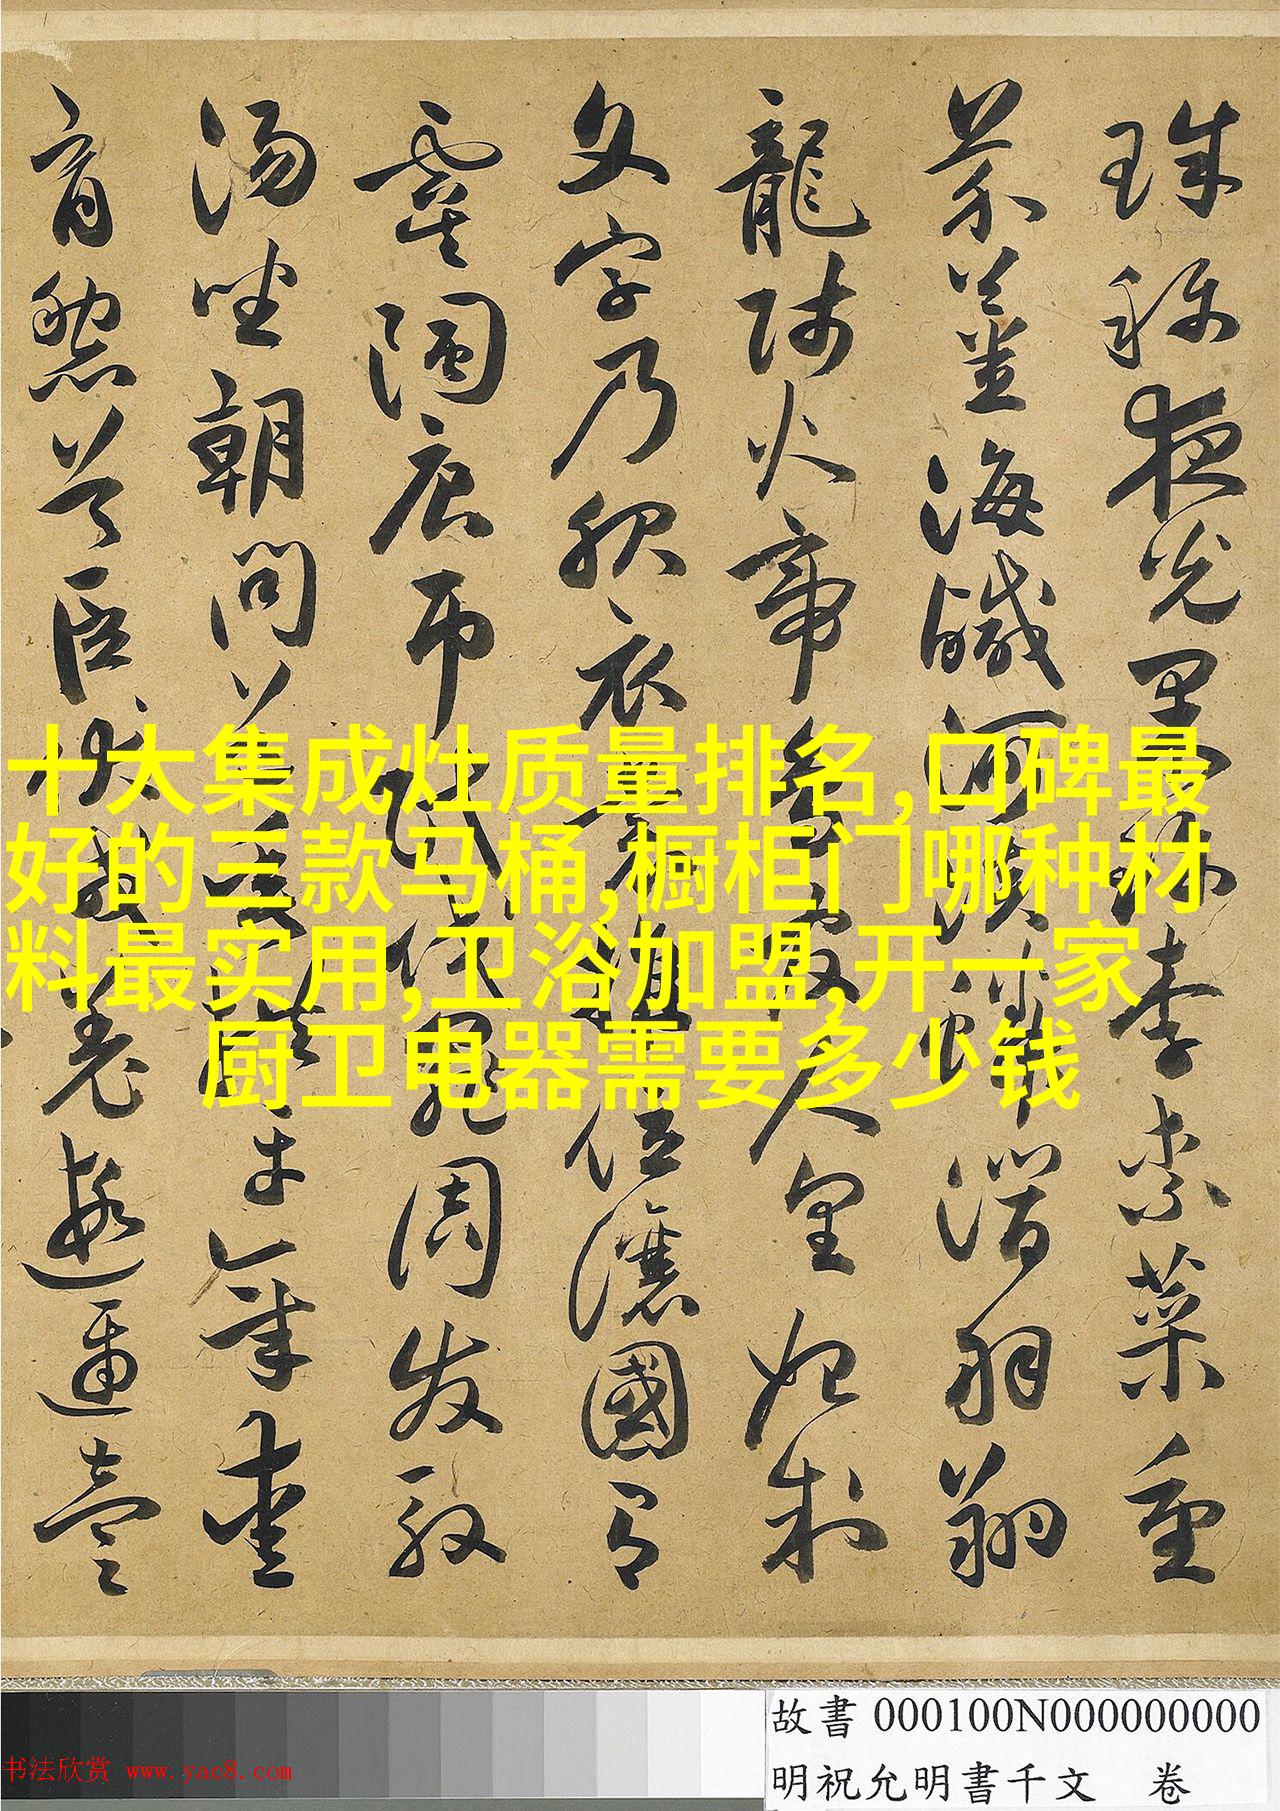 珠稱夜光果珍李柰菜重
芥薑海鹹河淡鱗潛羽翔
龍師火帝鳥官人皇始制
文字乃服衣裳推位讓國有
虞陶唐弔民伐罪周發殷
湯坐朝問道垂拱平章愛
育黎首臣伏戎羌遐邇壹
十大集成灶质量排名,口碑最
好的三款马桶,橱柜门哪种材
料最实用,卫浴加盟,开一家
厨卫电器需要多少钱
故書 000100N000000000
明祝允明書千文 卷
书法欣赏 www.yac8.com